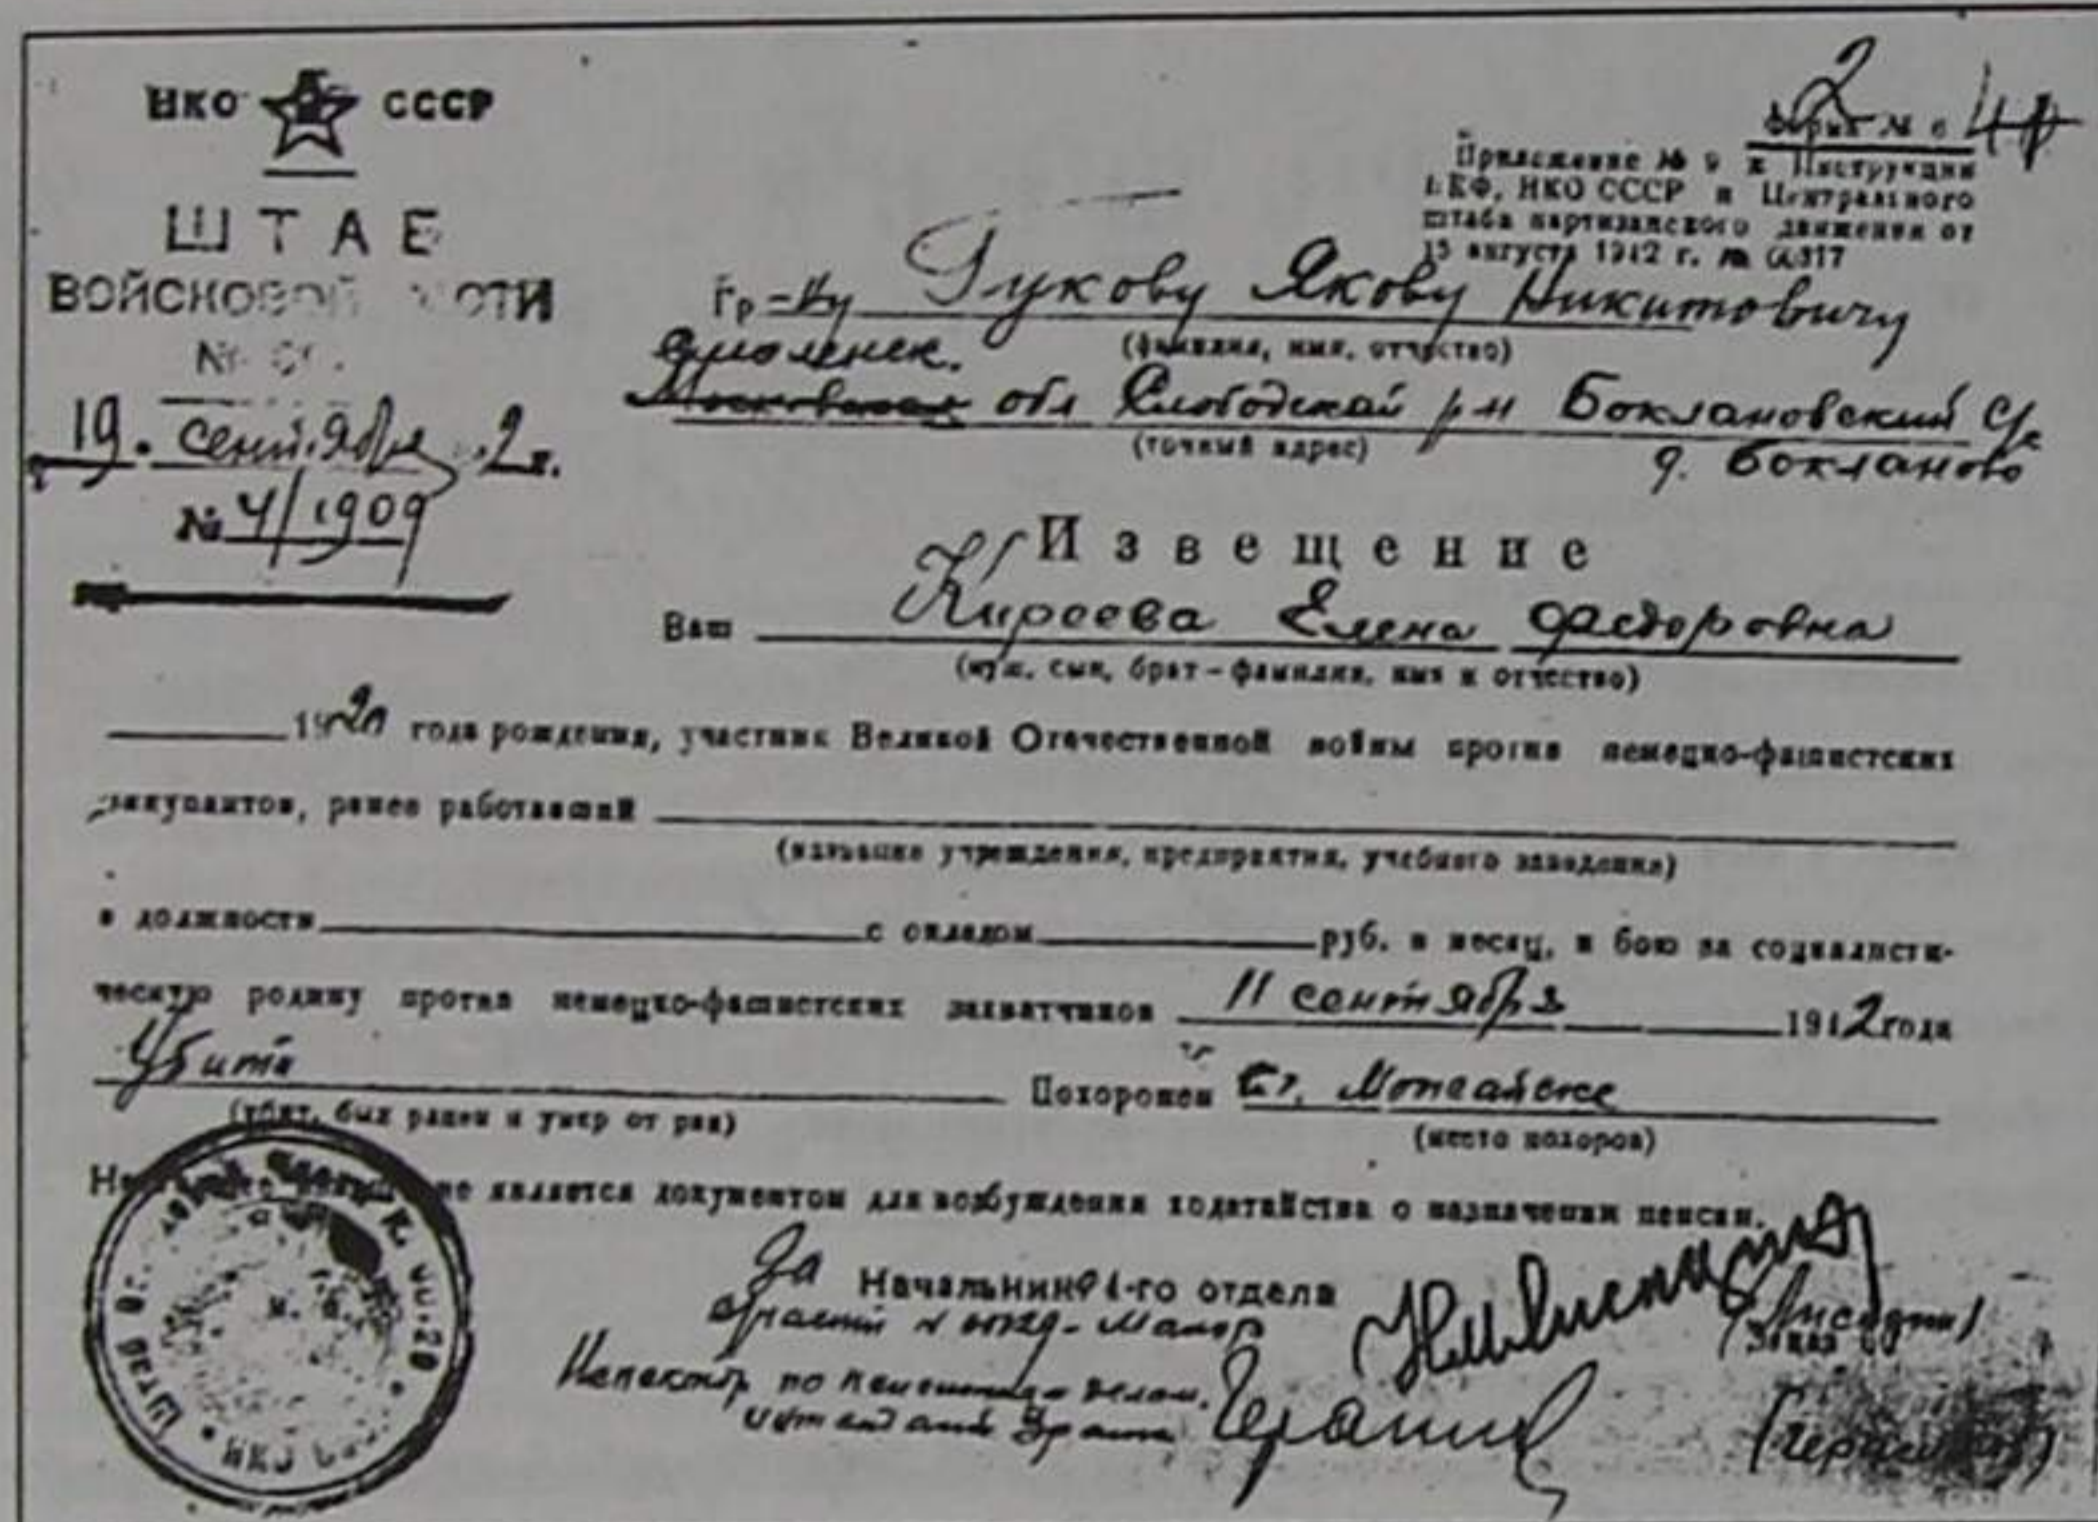 НКО СССР
ШТАБ
ВОЙСКОВОЙ ЧАСТИ
№
19. сентября 2 г.
№ 4/1909
2
Форма № 6
Приложение № 9 к Инструкции
НКФ, НКО СССР и Центрального
штаба партизанского движения от
15 августа 1942 г. №
Гр-ну Гукову Якову Никитовичу
(фамилия, имя, отчество)
Смоленск.
Московская обл Слободской р-н Боклановский с/с
(точный адрес)
д. Бокланово
Извещение
Ваш Киреева Елена Федоровна
(муж, сын, брат – фамилия, имя и отчество)
1920 года рождения, участник Великой Отечественной войны против немецко-фашистских
оккупантов, ранее работавший
(название учреждения, предприятия, учебного заведения)
в должности с окладом руб. в месяц, в бою за социалисти-
ческую родину против немецко-фашистских захватчиков 11 сентября 1942 года
Убита
Похоронен ст. Можайске
(убит, был ранен и умер от ран)
(место похорон)
является документом для возбуждения ходатайства о назначении пенсии.
За Начальник 4-го отдела
майор
Инспектор по пенсионным делам,